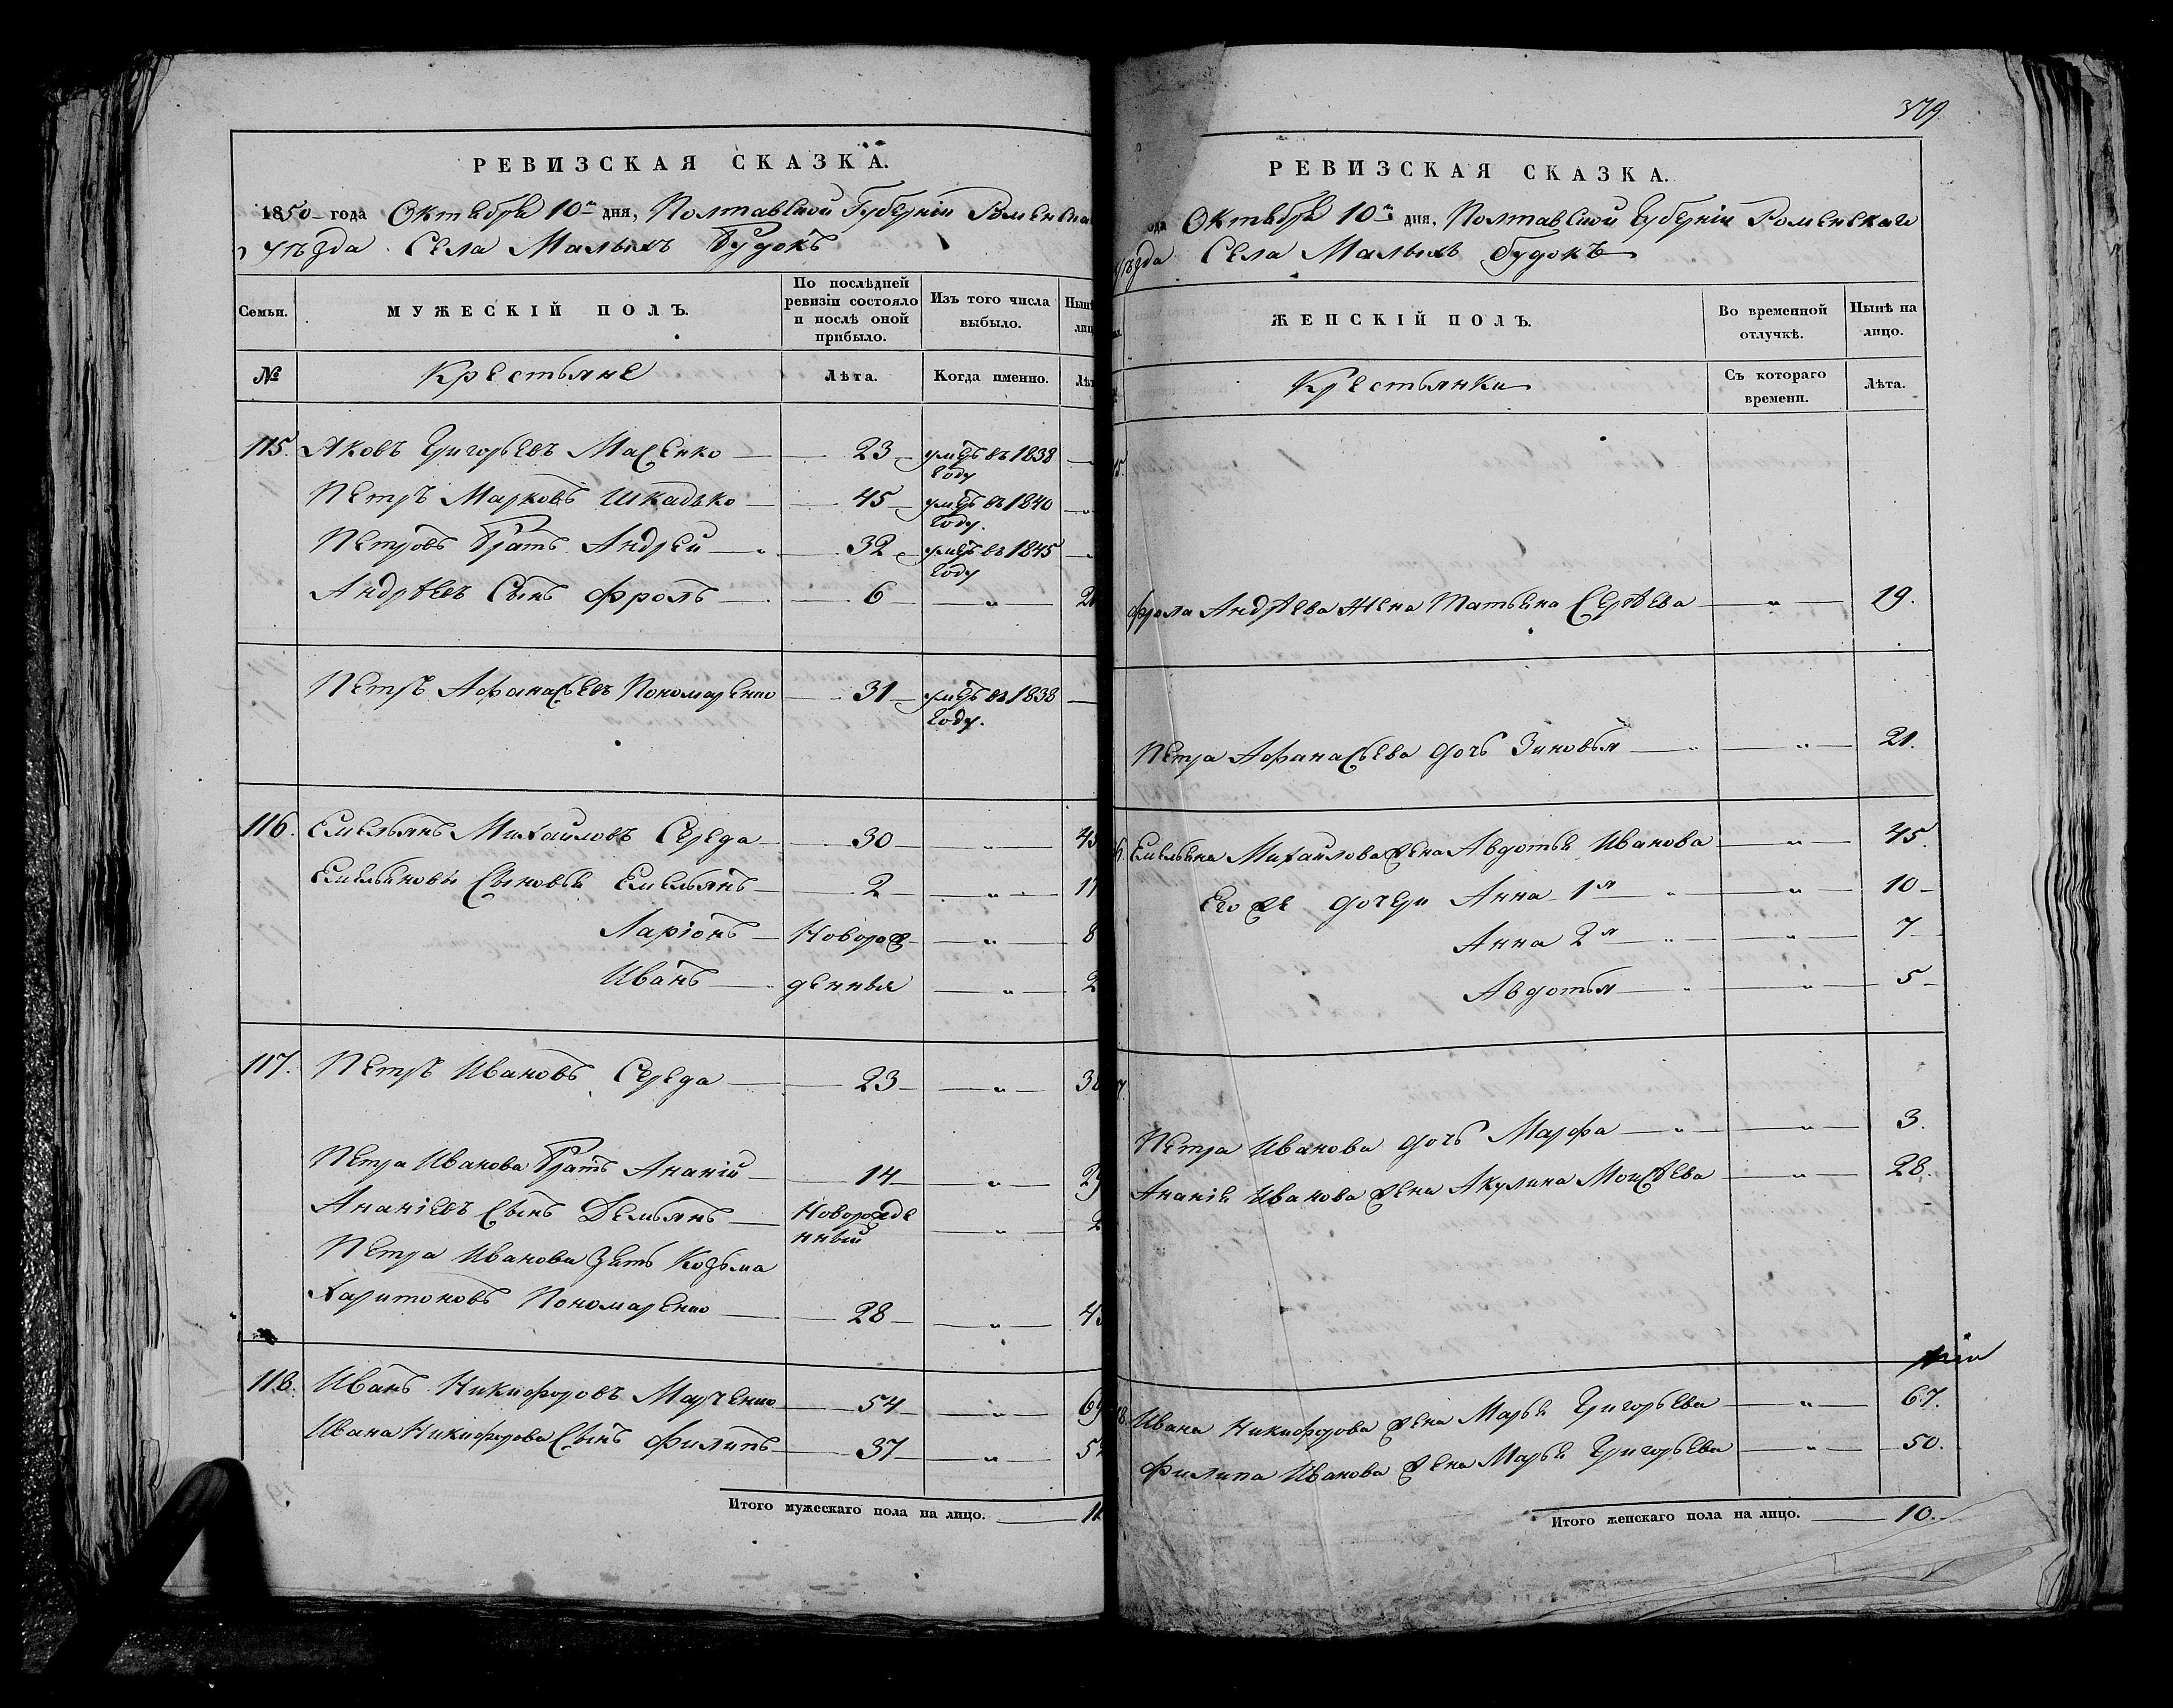 РЕВИЗСКАЯ СКАЗКА.
1850 года Октября 10го дня, Полтавской Губерніи Роменска
Уѣзда Села Малыхъ Будокъ
Семьи.
МУЖЕСКІЙ ПОЛЪ.
По послѣдней ревизіи состояло и послѣ оной прибыло.
Изъ того числа выбыло.
№
Крестьяне
Лѣта.
Когда именно.
115. Яковъ Григорьевъ Масенко — 23 — умеръ въ 1838 году
Петръ Марковъ Шкадько — 45 — умеръ въ 1840 году.
Петровъ Братъ Андрей — 32 — умеръ въ 1845 году
Андрѣевъ Сынъ Фролъ — 6 — „ —
Петръ Афанасьевъ Пономаренко — 31 — умеръ въ 1838 году.
116. Емельянъ Михайловъ Середа — 30 — „ —
Емельяновы Сыновья Емельянъ — 2 — „ — 17
Ларіонъ — Иоворож — „ — 8
Иванъ — денныя — „ — 2
117. Петръ Ивановъ Середа — 23 — „ —
Петра Иванова Братъ Ананій — 14 — „ — 29
Ананіевъ Сынъ Демьянъ — Новорожде нный — „ — 2
Петра Иванова Зять Козьма
Харитоновъ Пономаренко — 28 — „ —
118. Иванъ Никифоровъ Марченко — 54 — „ — 69
Ивана Никифорова Сынъ Филипъ — 37 — „ —
Итого мужескаго пола на лицо. —
379
РЕВИЗСКАЯ СКАЗКА.
ода Октября 10го дня, Полтавской Губерніи Роменскаго
Уѣзда Села Малыхъ Будокъ
ЖЕНСКІЙ ПОЛЪ.
Во временной отлучкѣ.
Нынѣ на лицо.
Крестьянки
Съ котораго времени.
Лѣта.
Фрола Андрѣева Жена Татьяна Сергѣева — „ — 19.
Петра Афанасьева дочь Зиновья — „ — 21.
Емельяна Михайлова жена Авдотья Иванова — „ — 45.
Его же дочери Анна 1я — „ — 10
Анна 2я — „ — 7
Авдотья — „ — 5
Петра Иванова дочь Марфа — „ — 3.
Ананія Иванова жена Акулина Моисѣева — „ — 28.
Ивана Никифорова жена Марья Григорьева — „ — 67.
Филипа Иванова жена Марья Григорьева — „ — 50.
Итого женскаго пола на лицо. — 10.